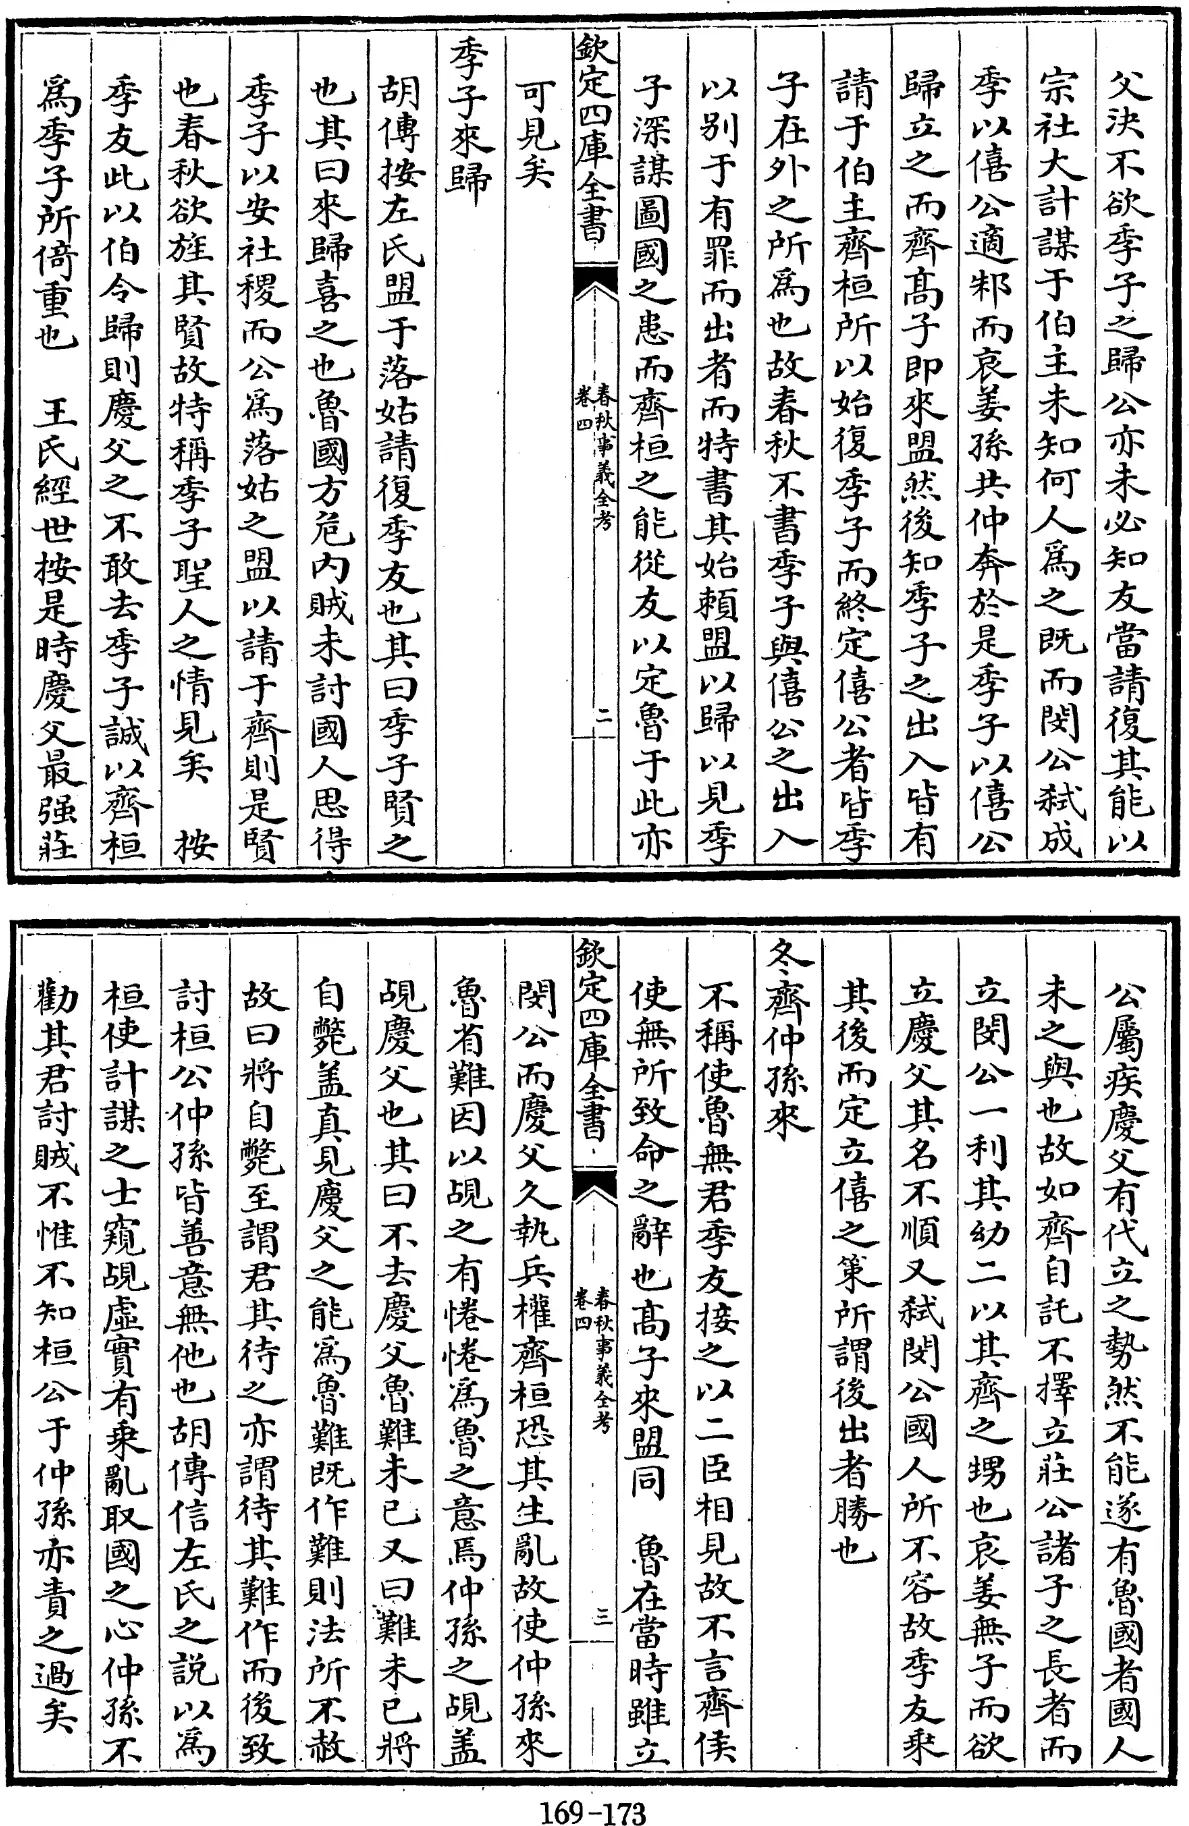 父決不欲季子之歸公亦未必知友當請復其能以
宗社大計謀于伯主未知何人爲之既而閔公弑成
季以僖公適邾而哀姜孫共仲奔於是季子以僖公
歸立之而齊髙子即來盟然後知季子之出入皆有
請于伯主齊桓所以始復季子而終定僖公者皆季
子在外之所爲也故春秋不書季子與僖公之出入
以别于有罪而出者而特書其始頼盟以歸以見季
子深謀圖國之患而齊桓之能從友以定魯于此亦
欽定四庫全書
春秋事義全考
卷四
二
可見矣
季子來歸
胡傳按左氏盟于落姑請復季友也其曰季子賢之
也其曰來歸喜之也魯國方危内賊未討國人思得
季子以安社稷而公爲落姑之盟以請于齊則是賢
也春秋欲旌其賢故特稱季子聖人之情見矣　按
季友此以伯令歸則慶父之不敢去季子誠以齊桓
爲季子所倚重也　王氏經世按是時慶父最强莊
公屬疾慶父有代立之勢然不能遂有魯國者國人
未之與也故如齊自託不擇立莊公諸子之長者而
立閔公一利其幼二以其齊之甥也哀姜無子而欲
立慶父其名不順又弑閔公國人所不容故季友乗
其後而定立僖之策所謂後出者勝也
冬齊仲孫來
不稱使魯無君季友接之以二臣相見故不言齊侯
使無所致命之辭也髙子來盟同　魯在當時雖立
欽定四庫全書
春秋事義全考
卷四
三
閔公而慶父久執兵權齊桓恐其生亂故使仲孫來
魯省難因以覘之有惓惓爲魯之意焉仲孫之覘盖
覘慶父也其曰不去慶父魯難未已又曰難未已將
自斃盖真見慶父之能爲魯難既作難則法所不赦
故曰將自斃至謂君其待之亦謂待其難作而後致
討桓公仲孫皆善意無他也胡傳信左氏之説以爲
桓使計謀之士窺覘虛實有乗亂取國之心仲孫不
勸其君討賊不惟不知桓公于仲孫亦責之過矣
169-173